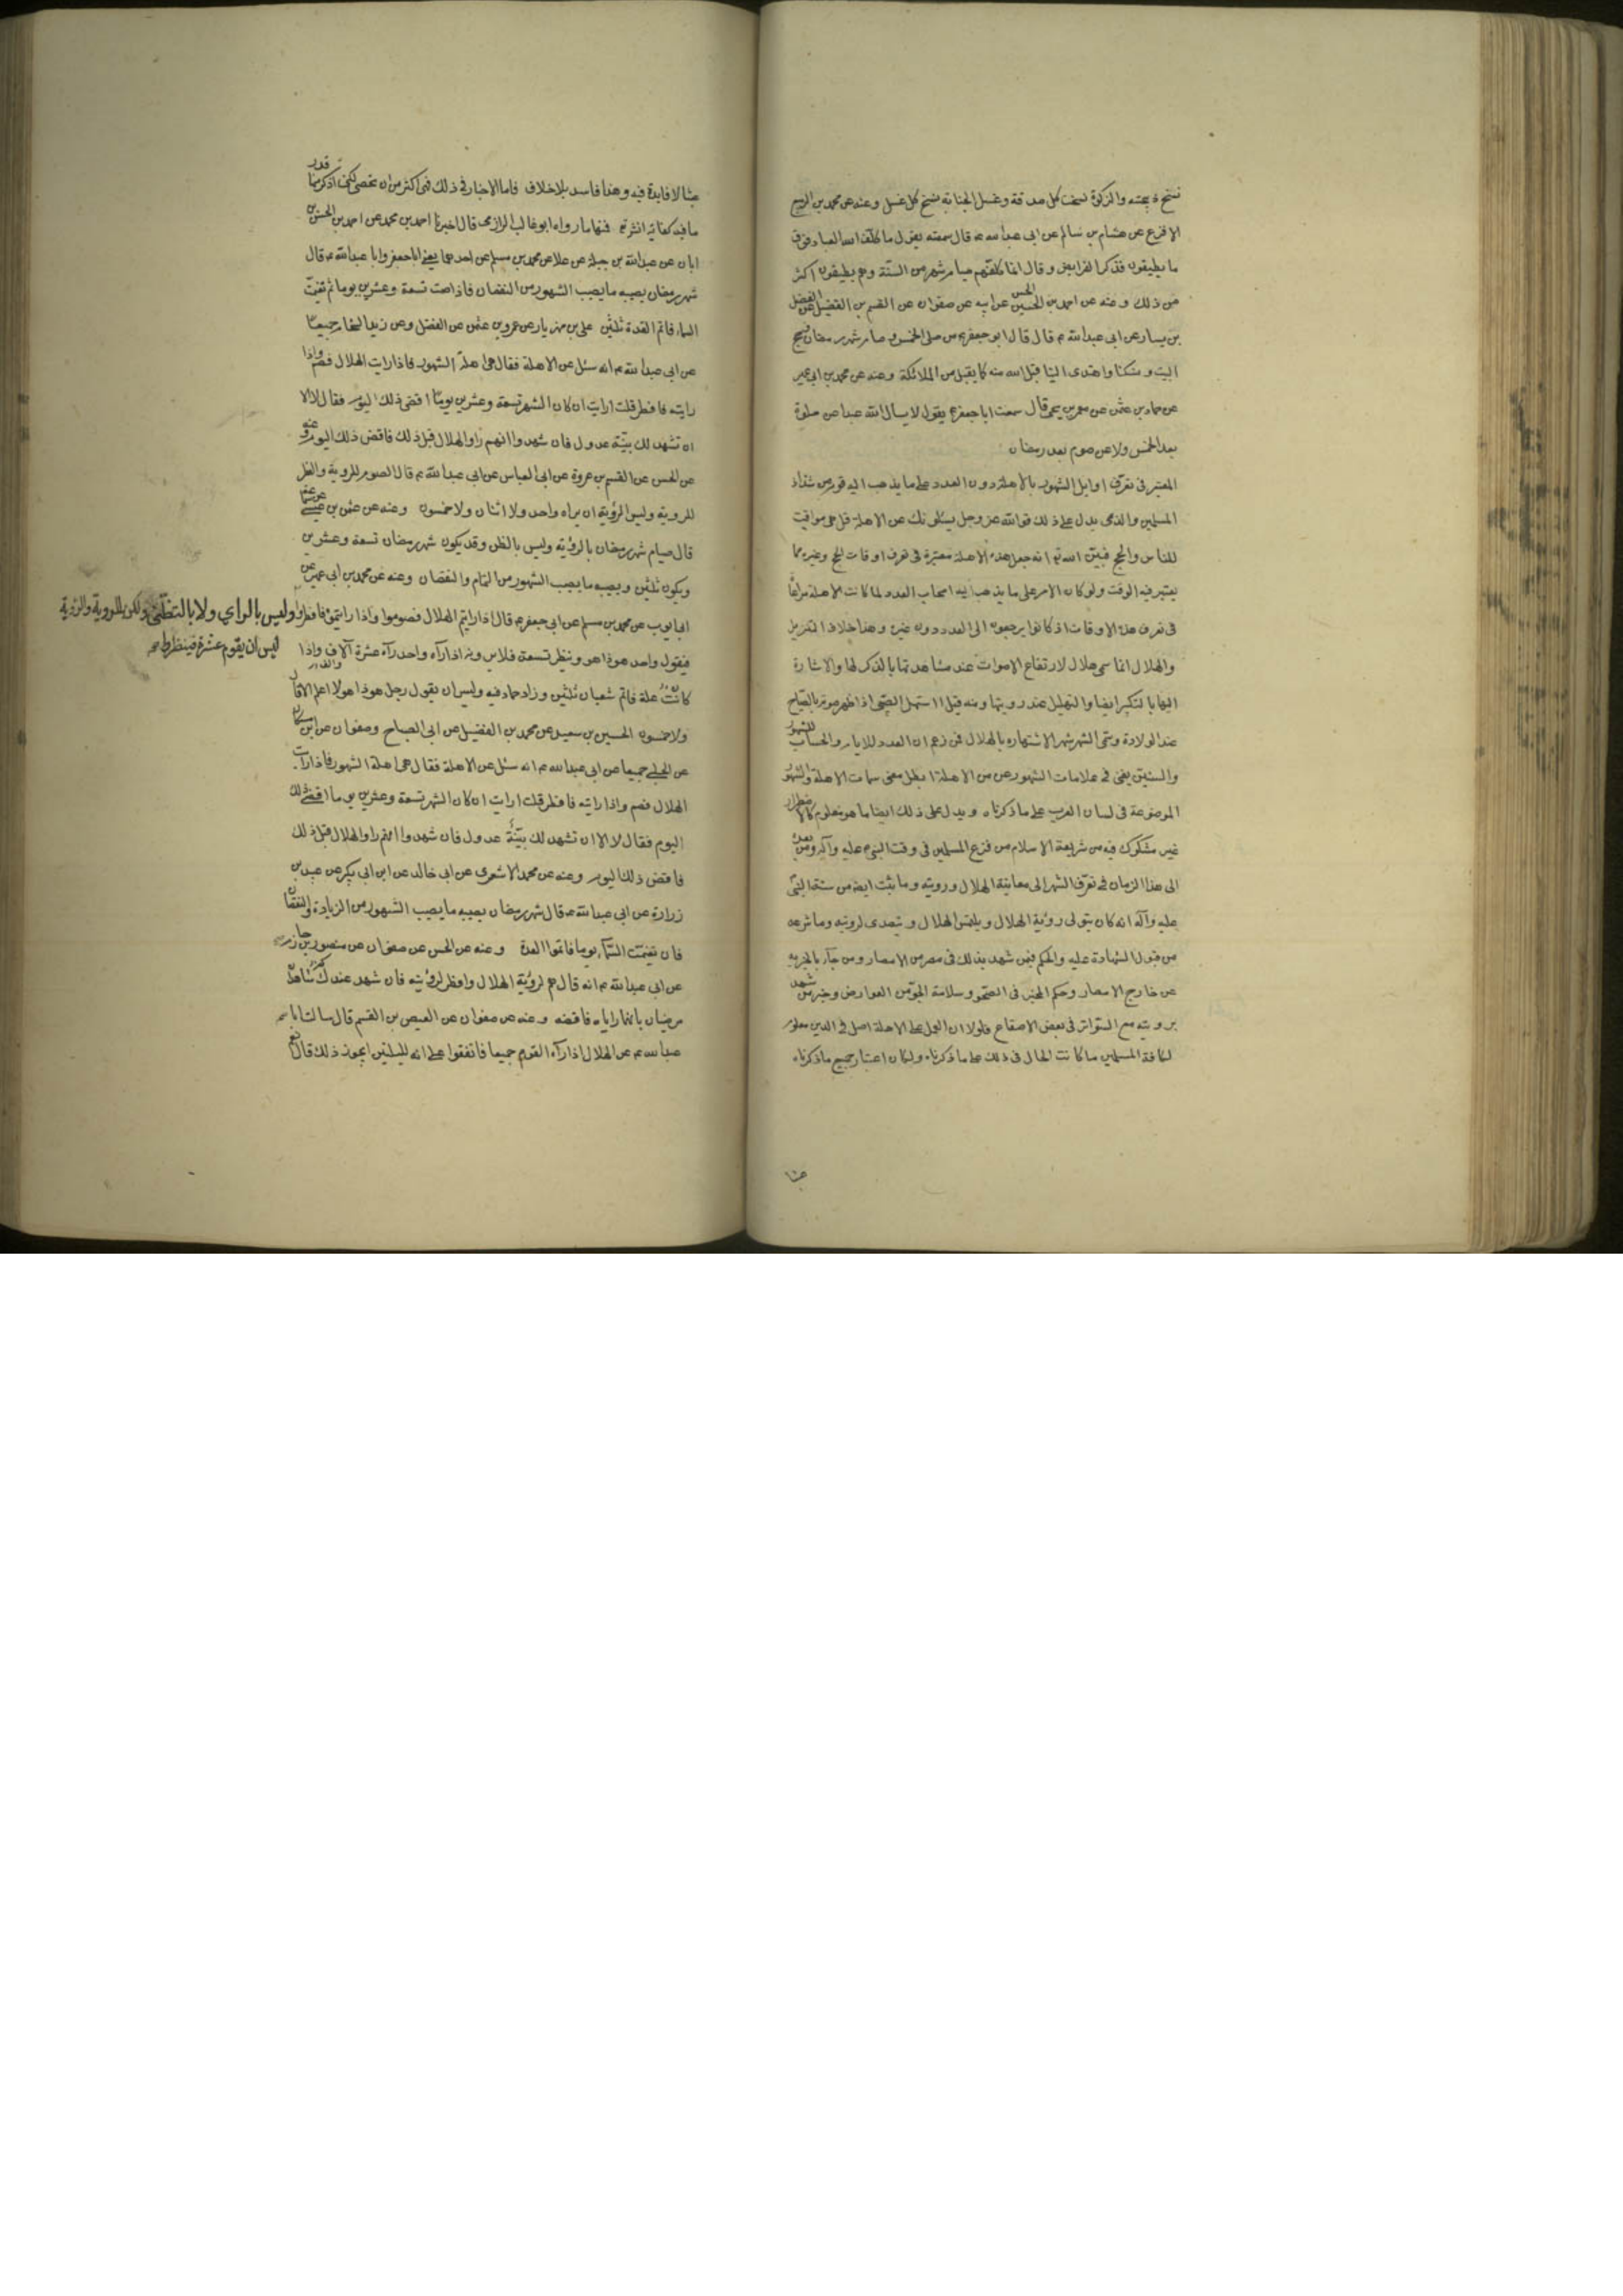 نسخ ذبيحته والزكوة نسخت كل صدقة وغسل الجنابة نسخ كل غسل وعنه عن محمد بن الربيع
الاقرع عن هشام بن سالم عن ابى عبد الله ع قال سمعته يقول ما كلف الله العباد فوق
ما يطيقون فذكر الفرايض وقال انما كلفهم صيام شهر من السنة وهم يطيقون اكثر
من ذلك وعنه عن احمد بن الحسين الحسن عن ابيه عن صفوان عن القسم بن الفضيل عن الفضيل
بن يسار عن ابى عبد الله ع قال قال ابو جعفر ع من صلى الخمس وصام شهر رمضان وحج
البيت ونسك نسكنا واهتدى الينا قبل الله منه كما يقبل من الملائكة وعنه عن محمد بن ابى عمير
عن حماد بن عثمن عن معمر بن يحيى قال سمعت ابا جعفر ع يقول لا يسال الله عبدا عن صلوة
بعد الخمس ولا عن صوم بعد رمضان
المعتبر فى تعرف اوايل الشهور بالاهلة دون العدد على ما يذهب اليه قوم من شذاذ
المسلمين والذى يدل على ذلك قول الله عز وجل يسئلونك عن الاهلة قل هى مواقيت
للناس والحج فبين الله تع انه جعل هذه الاهلة معتبرة فى تعرف اوقات الحج وغيره مما
يعتبر فيه الوقت ولو كان الامر على ما يذهب اليه اصحاب العدد لما كانت الاهلة مراعاة
فى تعرف هذه الاوقات اذ كانوا يرجعون الى العدد دون غيره وهذا خلاف التنزيل
والهلال انما سمى هلال لارتفاع الاصوات عند مشاهدتها بالذكر لها والاشارة
اليها بالتكبير ايضا والتهليل عند رويتها ومنه قيل استهل الصبى اذا ظهر صوته بالصياح
عند الولادة وسمى الشهر شهرا لاشتهاره بالهلال فمن زعم ان العدد للايام والحساب للشهور
والسنين يغنى فى علامات الشهور عن الاهلة ابطل معنى سمات الاهلة والشهور
الموضوعة فى لسان العرب على ما ذكرناه ويدل على ذلك ايضا ما هو معلوم كالاضطرار
غير مشكوك فيه من شريعة الاسلام من فزع المسلمين فى وقت النبى عليه وآله ومن بعده
الى هذا الزمان فى تعرف الشهر الى معاينة الهلال ورويته وما ثبت ايضا من سنة النبى
عليه وآله انه كان يتولى رؤية الهلال ويلتمس الهلال ويتصدى لرويته وما شرعه
من قبول الشهادة عليه والحكم فيمن شهد بذلك فى مصر من الامصار ومن جاء بالخبر به
عن خارج الامصار وحكم المخبر فى الصحو وسلامة الجو من العوارض وخبر من شهد
برويته مع السواتر فى بعض الاصقاع فلولا ان العمل على الاهلة اصل فى الدين معلوم
لكافة المسلمين ما كانت الحال فى ذلك على ما ذكرناه ولكان اعتبار جميع ما ذكرناه
عبثا
عبثا لا فايدة فيه وهذا فاسد بلا خلاف فاما الاخبار فى ذلك فهى اكثر من ان تحصى لكنى اذكر منها قدر
ما فيه كفاية انش تع فمنها ما رواه ابو غالب الرازى قال اخبرنا احمد بن محمد عن احمد بن الحسن بن
ابان عن عبد الله بن جبلة عن علا عن محمد بن مسلم عن احدهما يعنى ابا جعفر وابا عبد الله ع قال
شهر رمضان يصيبه ما يصيب الشهور من النقصان فاذا صمت تسعة وعشرين يوما ثم تغيمت
السماء فاتم العدة ثلثين على بن مهزيار عن عمرو بن عثمن عن المفضل وعن زيد الشحام جميعا
عن ابى عبد الله ع انه سئل عن الاهلة فقال هى اهلة الشهور فاذا رايت الهلال فصم واذا
رايته فافطر قلت ارايت ان كان الشهر تسعة وعشرين يوما اقضى ذلك اليوم فقال لا الا
ان تشهد لك بينة عدول فان شهدوا انهم راوا الهلال قبل ذلك فاقض ذلك اليوم وعنه
عن الحسن عن القسم بن عروة عن ابى العباس عن ابى عبد الله ع قال الصوم للروية والفطر
للروية وليس الرؤية ان يراه واحد ولا اثنان ولا خمسون وعنه عن عثمن بن عيسى عن سماعة
قال صيام شهر رمضان بالرؤية وليس بالظن وقد يكون شهر رمضان تسعة وعشرين
ويكون ثلثين ويصيبه ما يصيب الشهور من التمام والنقصان وعنه عن محمد بن ابى عمير عن
ابى ايوب عن محمد بن مسلم عن ابى جعفر ع قال اذا رايتم الهلال فصوموا واذا رايتموه فافطروا وليس بالراي ولا بالتظنى ولكن بالروية والرؤية
ليس ان يقوم عشرة فينظروا صح
فيقول واحد هو ذا هو وينظر تسعة فلا يرونه اذا رآه واحد رآه عشرة آلاف واذا
كانت علة فاتم شعبان ثلثين وزاد حماد فيه وليس ان يقول رجل هو ذا هو لا اعلم الا قال
ولا خمسون الحسين بن سعيد عن محمد بن الفضيل عن ابى الصباح وصفوان عن ابن مسكان
عن الحلبى جميعا عن ابى عبد الله ع انه سئل عن الاهلة فقال هى اهلة الشهور فاذا رايت
الهلال فصم واذا رايته فافطر قلت ارايت ان كان الشهر تسعة وعشرين يوما اقضى ذلك
اليوم فقال لا الا ان تشهد لك بينة عدول فان شهدوا انهم راوا الهلال قبل ذلك
فاقض ذلك اليوم وعنه عن محمد الاشعرى عن ابى خالد عن ابن ابى بكير عن عبيد بن
زرارة عن ابى عبد الله ع قال شهر رمضان يصيبه ما يصيب الشهور من الزيادة والنقصان
فان تغيمت السماء يوما فاتموا العدة وعنه عن الحسن عن صفوان عن منصور بن حازم
عن ابى عبد الله ع انه قال صم لرؤية الهلال وافطر لرؤيته فان شهد عندكم شاهدان
مرضيان بانهما راياه فاقضه وعنه عن صفوان عن العيص بن القسم قال سالت ابا
عبد الله ع عن الهلال اذا رآه القوم جميعا فاتفقوا على انه لليلتين ايجوز ذلك قال نعم